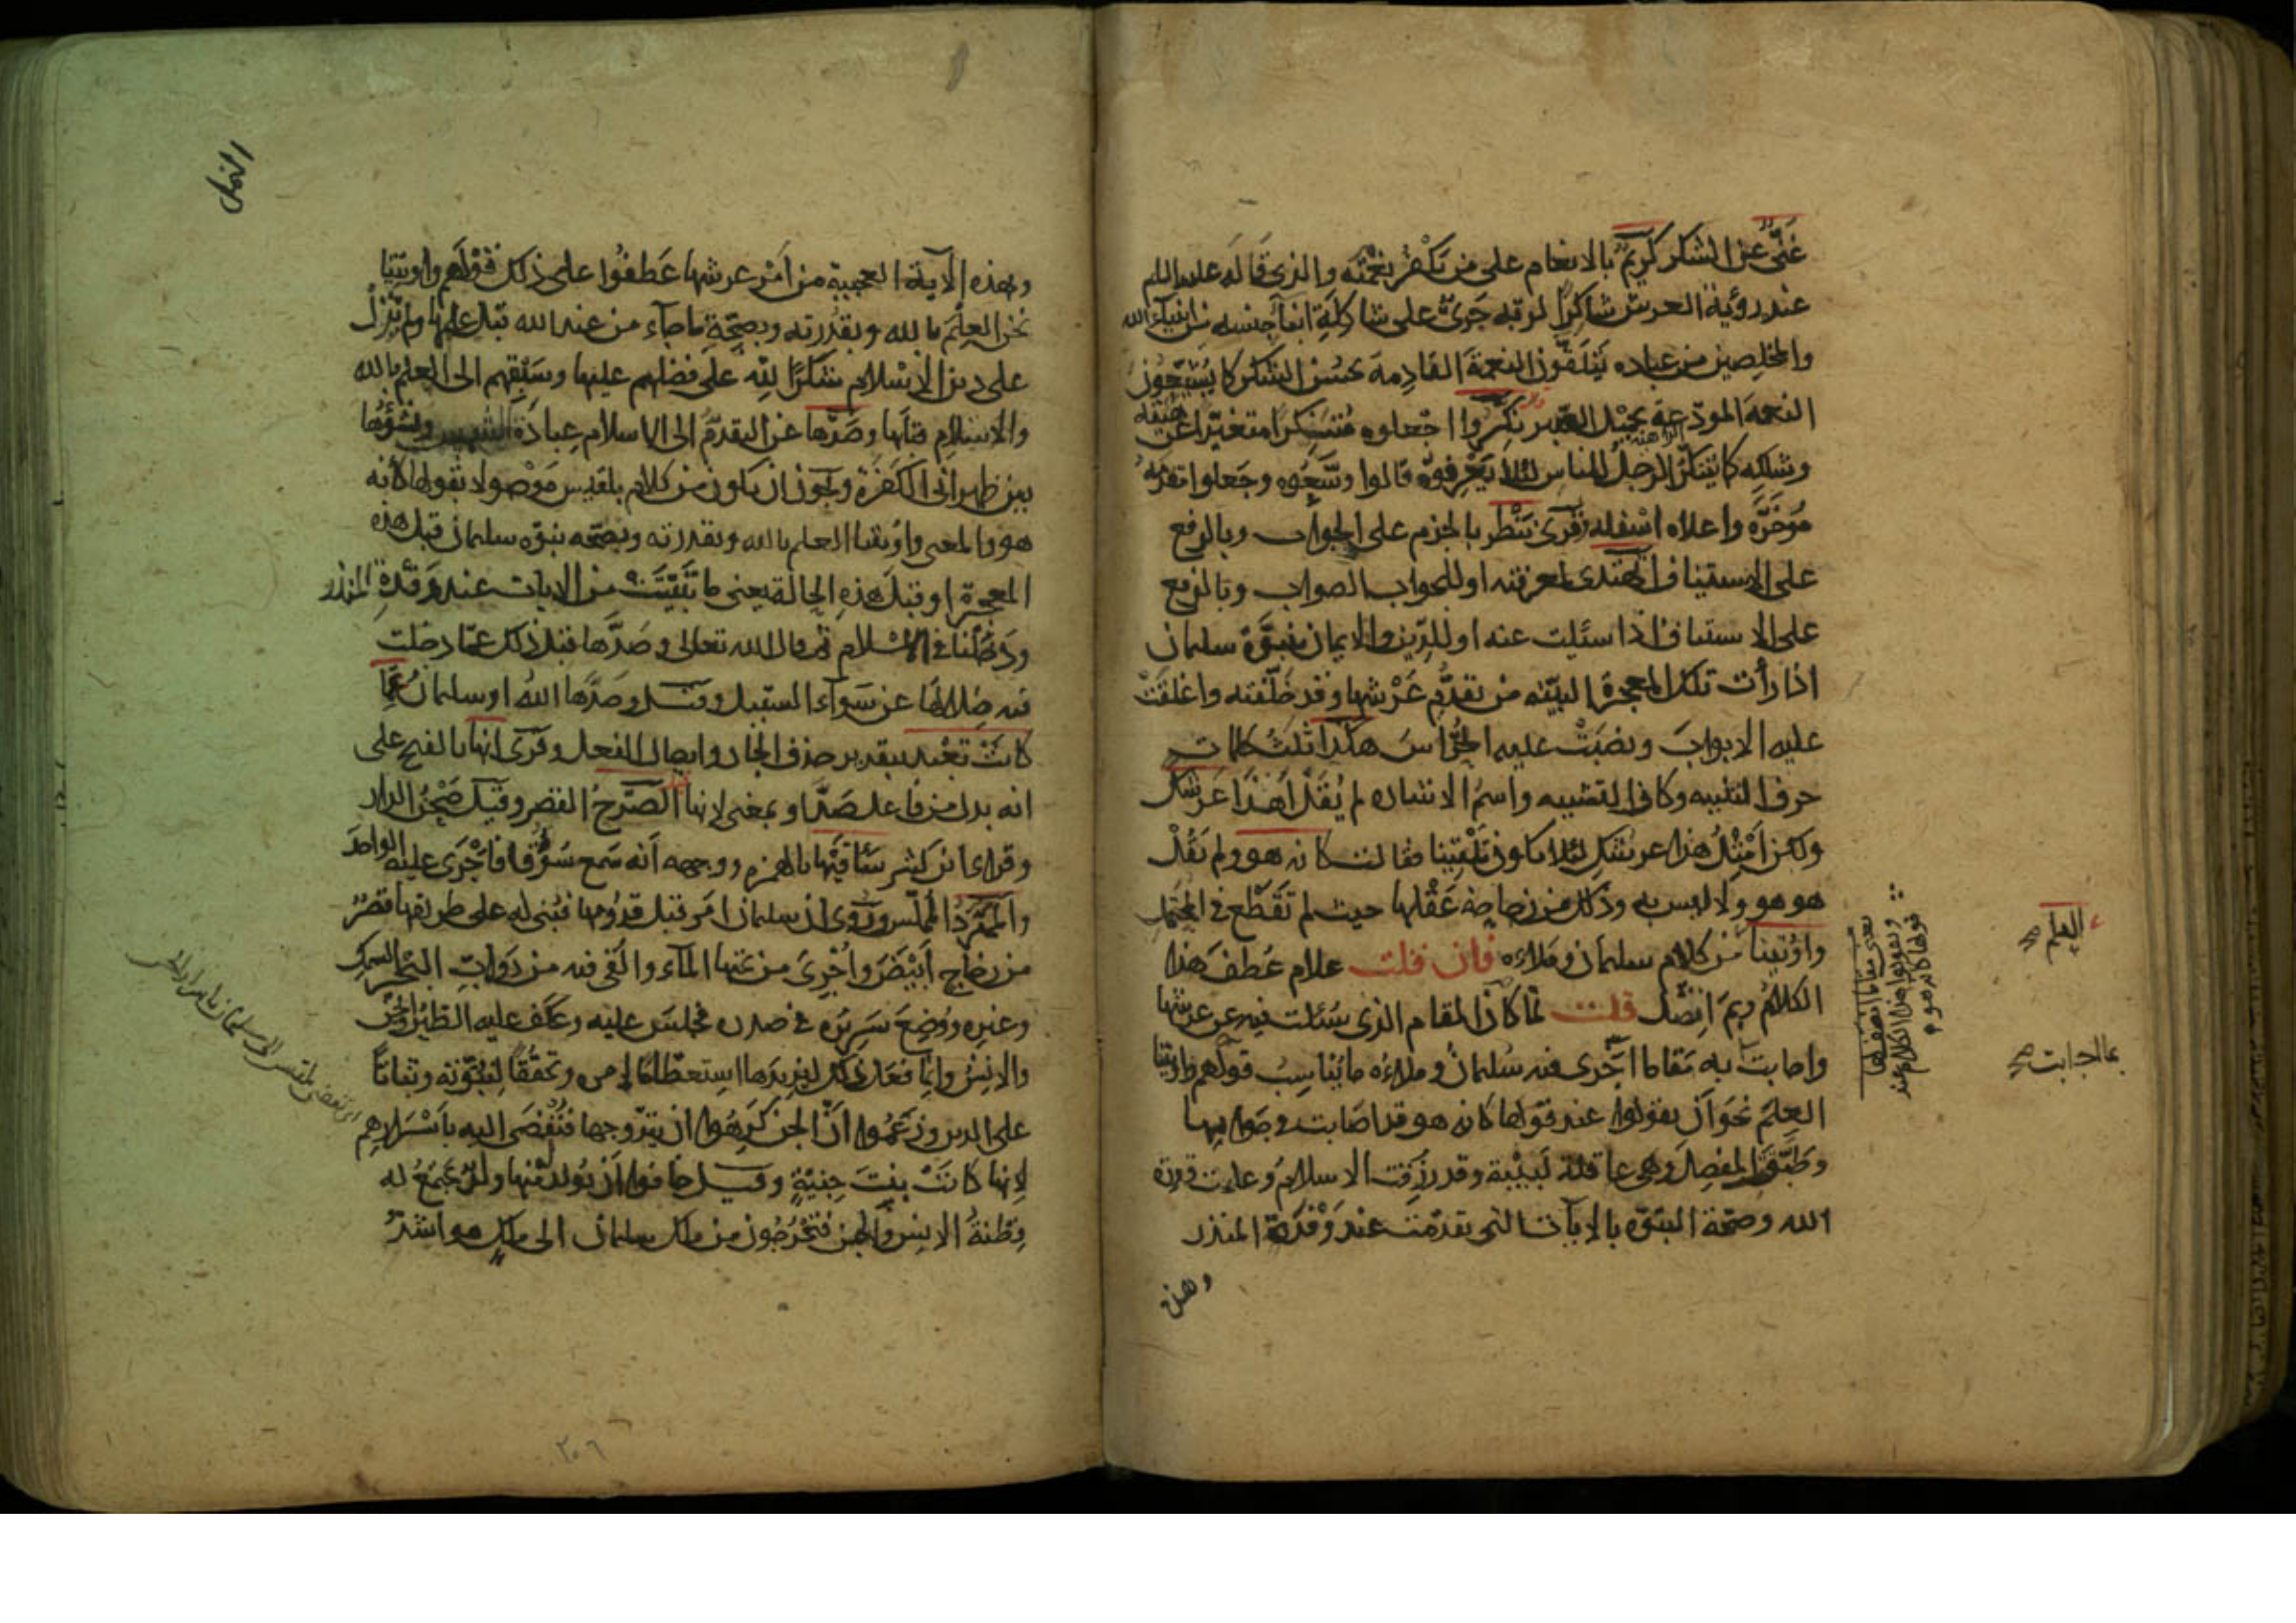 غَنِيٌّ عن الشكر كَريمٌ بالانعام على من يَكفُر بنعمته والذي قاله عليه السلم
عند رؤية العرش شاكرًا لربّه جَرىٌ على شاكلة ابنآء جنسه من انبيآء الله
والمخلصين من عباده يَتلقّون النعمةَ القادِمةَ بحُسن الشكر كما يُشيّعُون
النعمة المودّعة بجميل الصّبر نكّروا اجعلوه مُتنكّرًا متغيّرًا عن هيئته
وشكله كما يَتنكّر الرجلُ للناس لئلّا يَعْرفوهُ قالوا وسّعُوه وجَعلوا مقدّمَهُ
مُؤخَّرَه واعلاه اسْفله وقرئ نَنْظر بالجزم على الجواب وبالرفع
على الاستيناف اتهتدى لمعرفته او للجواب الصواب وبالرفع
على الاستيناف اذا سئلت عنه او للدّين والايمان بنبوّة سليمان
اذا رأت تلك المعجزة البيّنه من تقدّم عَرْشها وقد خلّفته واغلقَتْ
عليه الابوابَ ونصَبتْ عليه الحُرّاسَ هكذا ثلثُ كلمات
حرف التنبيه وكاف التشبيه واسمُ الاشاره لم يُقَلْ اهذا عرشك
ولكن اَمِثْلُ هذا عرشك لئلا يكون تلقينا فقالت كانه هو ولم تقُلْ
هو هو ولا ليس به وذلك من رَجاحة عَقْلها حيث لم تَقطَع في المحتمل
واوتينا من كلام سليمان وملاءه فان قلت علام عُطف هذا
الكلامُ وبِمَ اتّصَل قلت لمّا كان المقام الذي سُئلت فيه عن عرشها
واجابت به مَقاما اَجْرى فيه سُليمانُ وملاءُه ما يُناسِبُ قولَهم واوتينا
العِلمَ نحو اَن يقولوا عند قولها كانه هو قد اَصَابت في جَوابها
وطَبّقتِ المفصِلَ وهى عاقلة لَبيْبة وقد رُزقت الاسلامَ وعلمت قدرة
الله وصحّة النبوّه بالآيات التي تقدّمت عند وَفْدة المنذر
وهذه
العلم صح
بما اجابت صح
النمل
وبهذه الآية العجيبة من اَمْر عرشها عَطفُوا على ذلك قولَهم واوتينا
نحن العِلْمَ بالله وبقُدرته وبصحّة ما جآء من عند الله قبل علمها ولم نَزلْ
على دين الاسْلام شكرًا لِلّه على فضلهم عليها وسَبْقِهم الى العلم بالله
والاسلام قبلها وصَدّها عن التقدّم الى الاسلام عِبادةُ الشمس ونشؤُها
بين ظهرانى الكفَرة ويجوز ان يكون من كلام بلقيس مَوْصولا بقولها كانه
هو والمعنى واُوتينا العلم بالله وبقدرته وبصحّه نبوّه سليمان قبل هذه
المعجزة او قبلَ هذهِ الحالَة يعنى ما تَبيّنَتْ من الايات عند وفْدةِ المنذر
ودَخَلْنا في الاسْلام ثم قال الله تعالى وصَدَّها قبل ذلك عمّا دخلت
فيه ضلالُها عن سَوآء السّبيل وقيل وصَدّها اللهُ او سليمانُ عمّا
كانَتْ تعْبد بتقدير حذف الجار وايصال الفعل وقرئ انها بالفتح على
انه بدل من فاعل صَدَّ او بمعنى لانها الصَرْحُ القصر وقيل صَحْنُ الدار
وقرا ابن كثير سأقيْها بالهمزه ووجهه اَنه سَمع سُؤْقا فاَجْرَى عليه الواحدَ
والمُمَرَّدُ المُملّس ورُوى ان سليمان اَمَر قبل قدُومها فبُنى له على طريقها قصْرٌ
من زجاج اَبْيَضَ واُجْرِىَ من تحتها المآء والقى فيه من دَوابّ البَحْر السمك
وغيره ووُضِعَ سَريْرُه في صدره فجلسَ عليه وعكَف عليه الطيْرُ والجنّ
والانِسُ وانما فعَل ذلك ليَزيدَها استعظامًا لامره وتحقّقًا لنُبُوّته وثباتًا
على الدين وزعَمُوا اَنّ الجن كَرِهُوا ان يتزوجها فتُفْضى اليه باَسْرارهم
لِانها كانَتْ بِنتَ جِنيّةٍ وقيل خافوا اَن يُولدَ له منها ولدٌ تجْتمِعُ له
فِطْنةُ الانِس والجن فتَخْرُجُون من ملك سليمان الى مَلِكٍ هو اشدُّ
٢٠٦